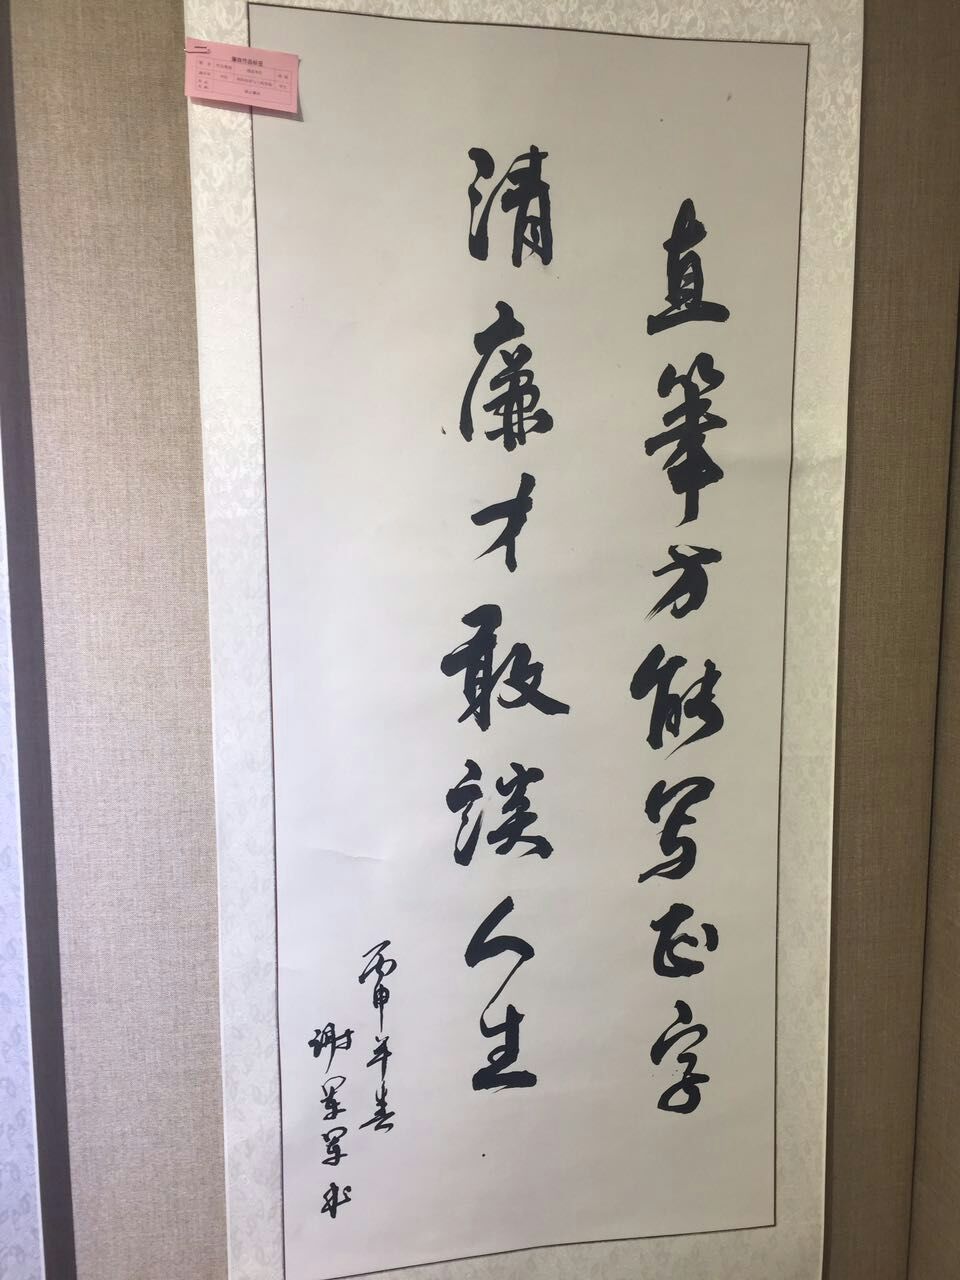 直笔方能写正字
清廉才敢談人生
丙申年春
谢军军书
廉政作品标签